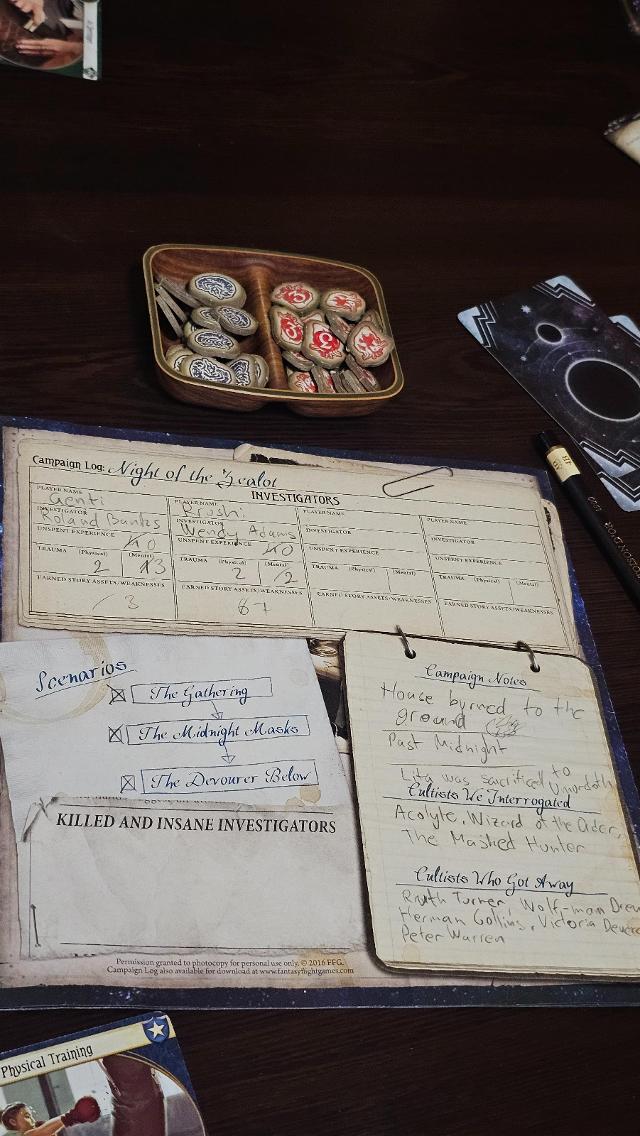 Campaign Log: Night of the Zealot
INVESTIGATORS
PLAYER NAME
Genti
INVESTIGATOR
Roland Banks
UNSPENT EXPERIENCE
0
TRAUMA (Physical) (Mental)
2 3
EARNED STORY ASSETS/WEAKNESSES
PLAYER NAME
Rrushi
INVESTIGATOR
Wendy Adams
UNSPENT EXPERIENCE
0
TRAUMA (Physical) (Mental)
2 2
EARNED STORY ASSETS/WEAKNESSES
PLAYER NAME
INVESTIGATOR
UNSPENT EXPERIENCE
TRAUMA (Physical) (Mental)
EARNED STORY ASSETS/WEAKNESSES
PLAYER NAME
INVESTIGATOR
UNSPENT EXPERIENCE
TRAUMA (Physical) (Mental)
EARNED STORY ASSETS/WEAKNESSES
Scenarios
The Gathering
The Midnight Masks
The Devourer Below
KILLED AND INSANE INVESTIGATORS
Campaign Notes
House burned to the
ground
Past Midnight
Lita was sacrificed to Umordoth
Cultists We Interrogated
Acolyte, Wizard of the Order,
The Masked Hunter
Cultists Who Got Away
Ruth Turner, Wolf-man Drew
Herman Collins, Victoria
Peter Warren
Permission granted to photocopy for personal use only. © 2016 FFG.
Campaign Log also available for download at www.fantasyflightgames.com
Physical Training